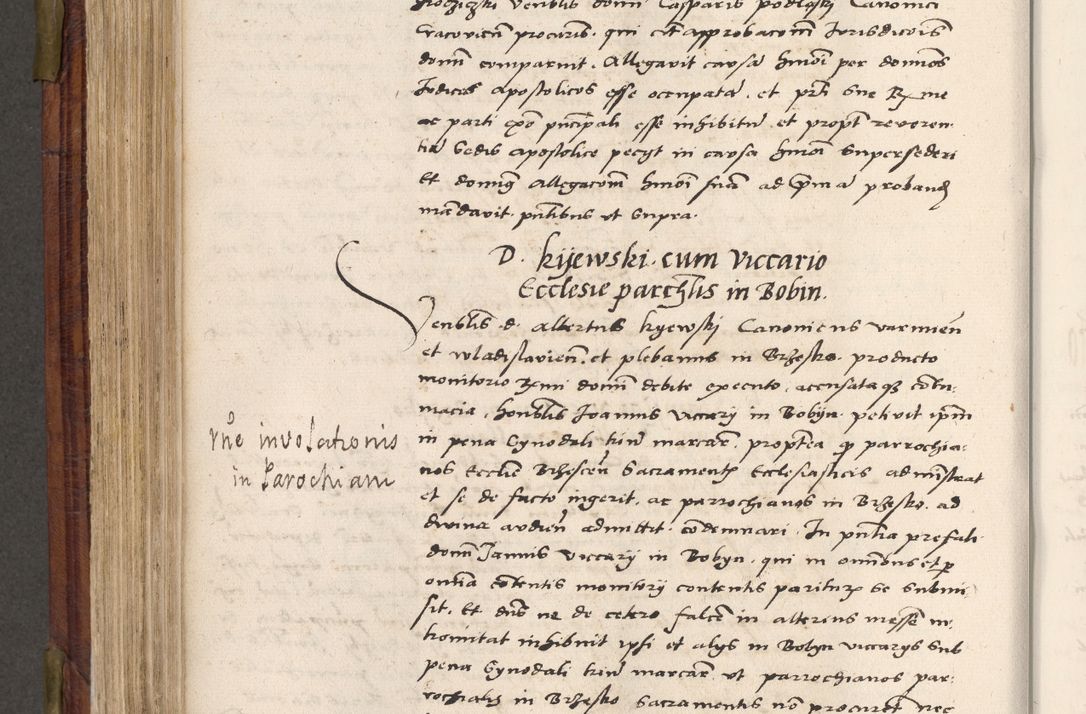 Venerabilis domini Casparis podlaski Canonici
Cracovien procuris qui cit approbacom Jurisdicois
domini comparuit. Allegavit causa hmoi per dominos
Judices Apostolicos esse occupata et prti sue R me
ac parti pncipali esse inhibitu et propt reveren
tia Sedis apostolice pecyt in causa hmoi Supersederi
et domig Allegacom hmoi sua ad pma proband
mandavit pntibus ut supra
D. kijewski cum Viccario
Ecclesie parchlis in Bobin.
Venblis d. Albertus kyewskj Canonicus varmien
et wladislavien et plebanus in Brzesko producto
monitorio rmi domini debite executo, accusataq contu
macia, honblis Joannis viccarij in Bobijn petivit ipm
in pena Synodali trium marcar proptea q parrochia
nos Ecclie Brzescen Sacramenta Ecclesiasticis administrat
et se de facto ingerit, ac parrochianos in Brzesko ad
divina audien admittit condemnari In pntia prefati
domini Jannis viccarij in Bobyn qui in omibus et p
omia cotentis monitorij contentis pariturum se submi
sit, Et dns ne de cetero falcem in alterius messem in
tromittat inhibuit ipsi et alijs in Bobyn viccarijs sub
pena Synodali trium marcar ut parrochianos par
rochialis in Brzesko Sacramentis no procuret nec
rne involationis
in Parochiam